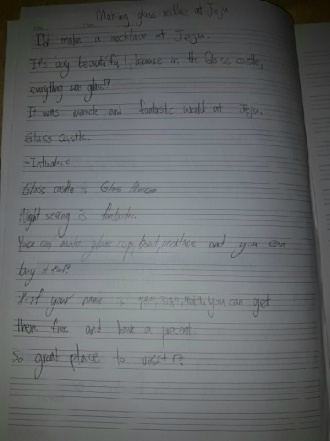 Making glass necklace at Jeju
I'd make a necklace at Jeju.
It's very beautiful, because in the Glass castle,
everything was glass!?
It was miracle and fantastic world at Jeju.
Glass castle.
-Introduce
Glass castle is Glass Museum
Night seeing is fantastic.
You can make glass cup, necklace and you can
buy it too?
If your name is you can get
them free and have a present.
So great place to visit!?